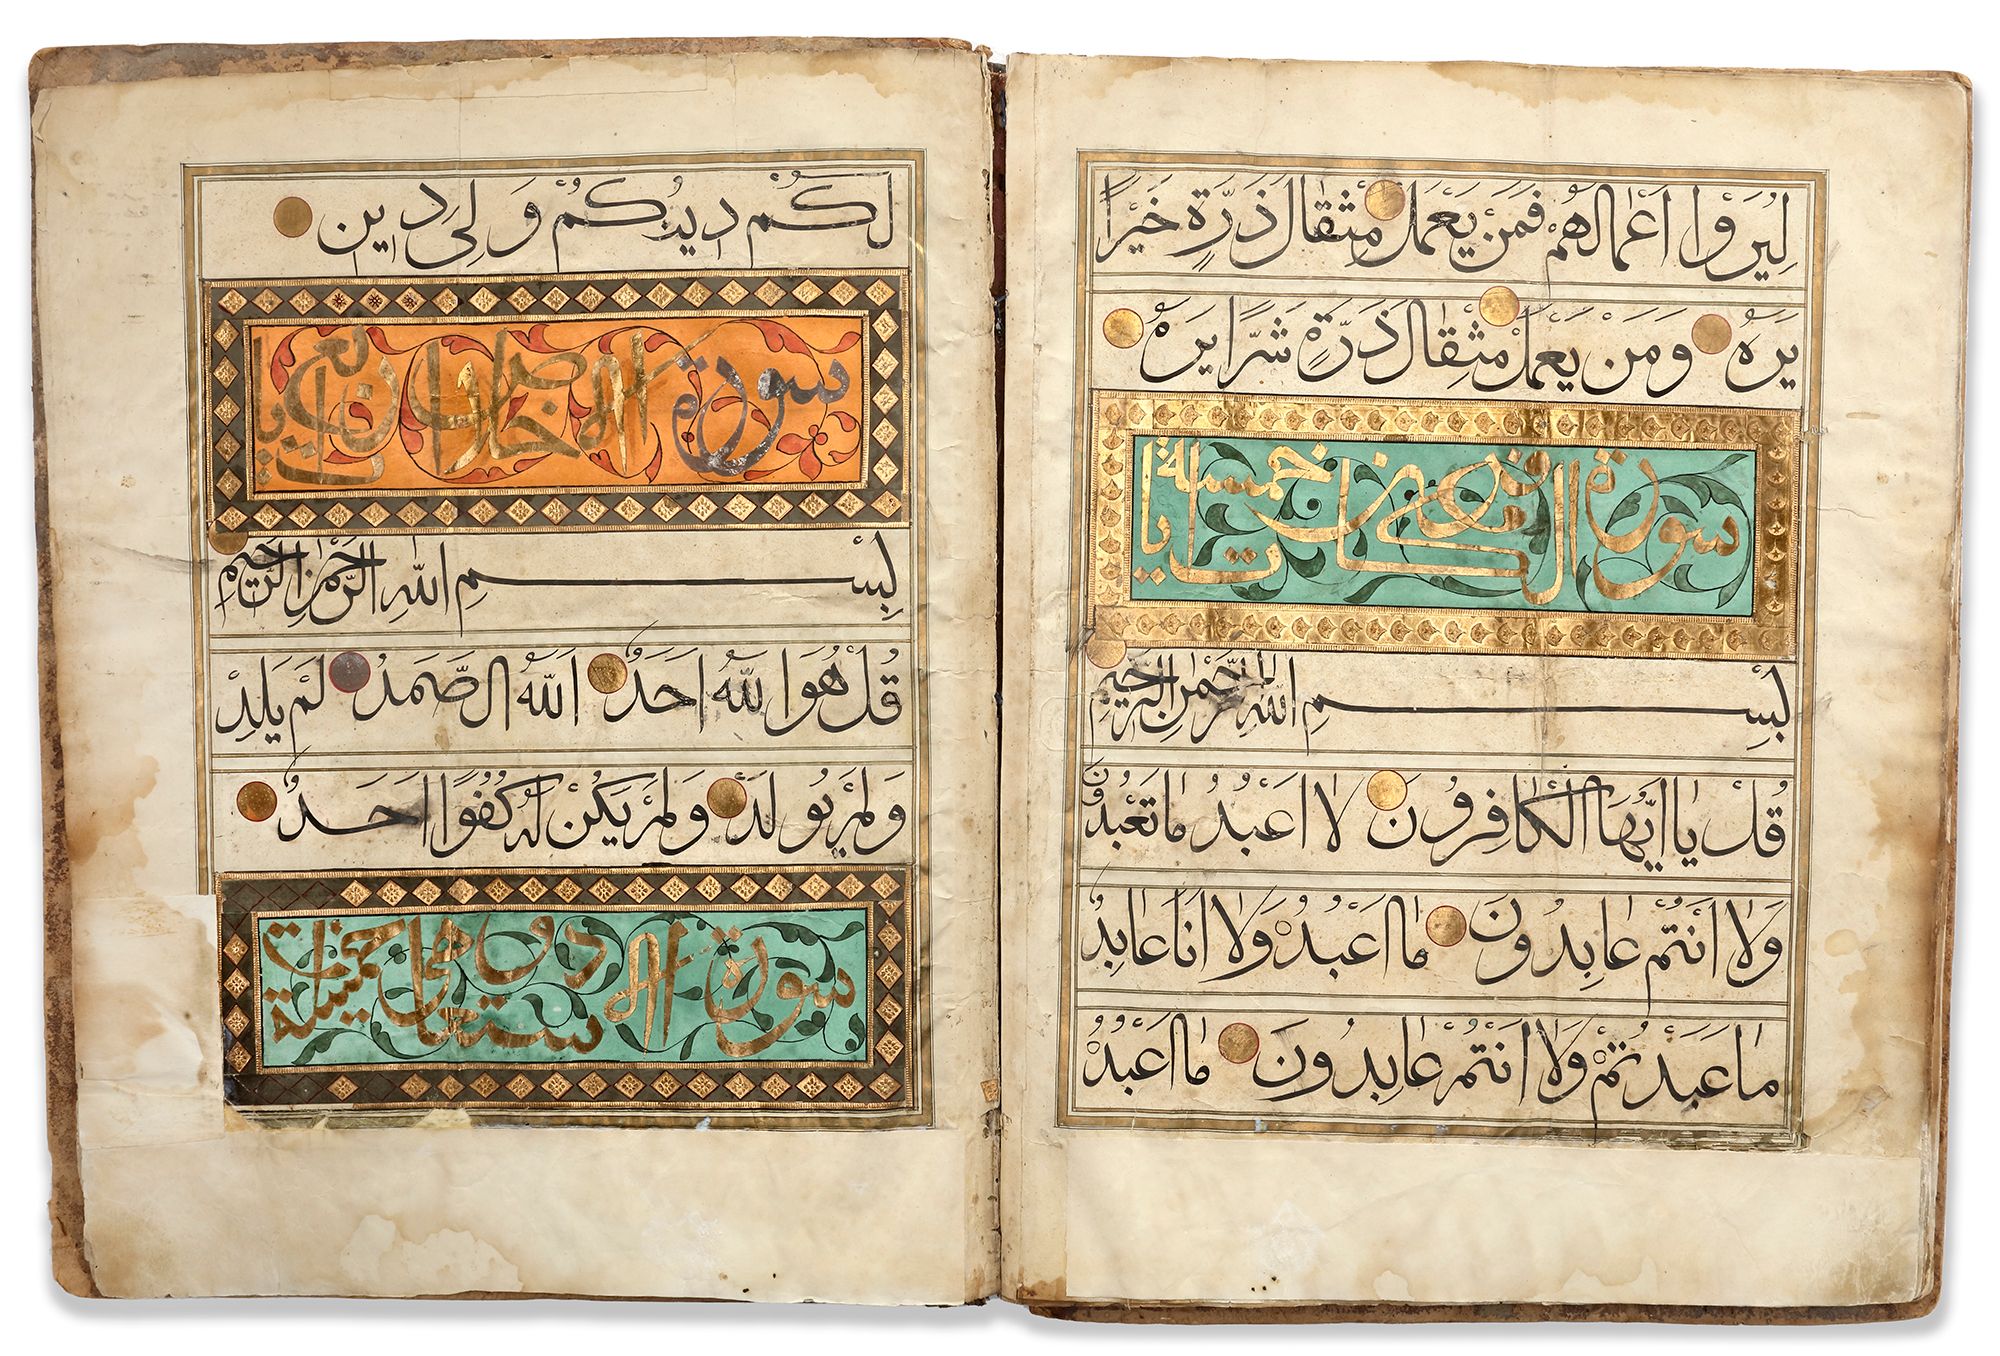 لِيُرَوْا اَعْمَالَهُمْ فَمَنْ يَعْمَلْ مِثْقَالَ ذَرَّةٍ خَيْرًا
يَرَهُ وَمَنْ يَعْمَلْ مِثْقَالَ ذَرَّةٍ شَرًّا يَرَهُ
سورة الكافرون خمسة ايات
بِسْمِ اللهِ الرَّحْمٰنِ الرَّحِيمِ
قُلْ يَا اَيُّهَا الْكَافِرُونَ لَا اَعْبُدُ مَا تَعْبُدُونَ
وَلَا اَنْتُمْ عَابِدُونَ مَا اَعْبُدُ وَلَا اَنَا عَابِدٌ
مَا عَبَدْتُمْ وَلَا اَنْتُمْ عَابِدُونَ مَا اَعْبُدُ
لَكُمْ دِينُكُمْ وَلِيَ دِينِ
سورة الاخلاص ايات
بِسْمِ اللهِ الرَّحْمٰنِ الرَّحِيمِ
قُلْ هُوَ اللهُ اَحَدٌ اَللهُ الصَّمَدُ لَمْ يَلِدْ
وَلَمْ يُولَدْ وَلَمْ يَكُنْ لَهُ كُفُوًا اَحَدٌ
سورة خمسة ايات